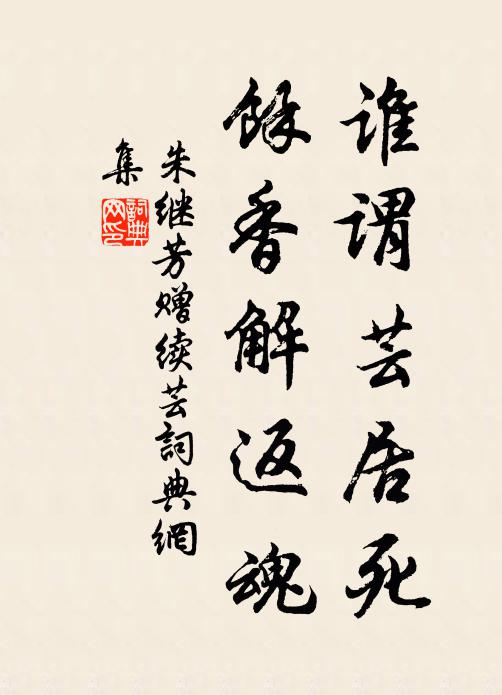 谁谓芸居死
馀香解返魂
朱继芳赠续芸詞典網
集
詞典
网印